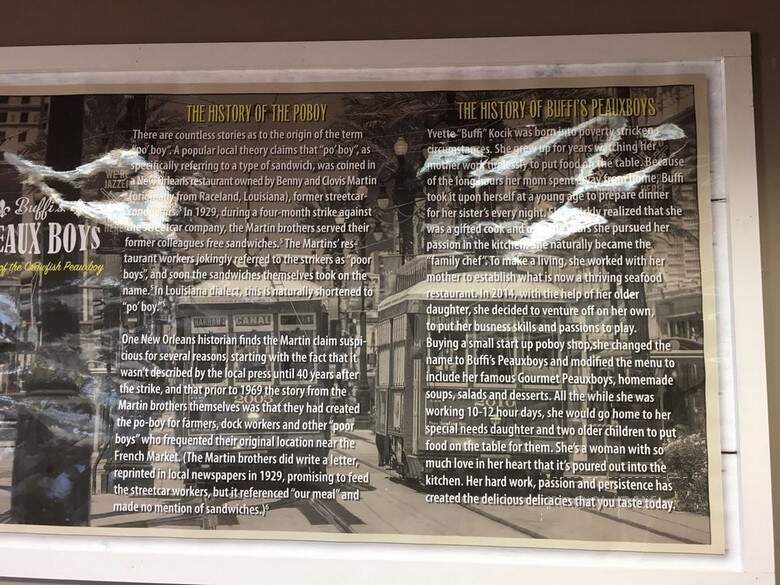 THE HISTORY OF THE POBOY
There are countless stories as to the origin of the term
"po' boy". A popular local theory claims that "po' boy", as
specifically referring to a type of sandwich, was coined in
a New Orleans restaurant owned by Benny and Clovis Martin
(originally from Raceland, Louisiana), former streetcar
conductors. In 1929, during a four-month strike against
the streetcar company, the Martin brothers served their
former colleagues free sandwiches. The Martins' res-
taurant workers jokingly referred to the strikers as "poor
boys", and soon the sandwiches themselves took on the
name. In Louisiana dialect, this is naturally shortened to
"po' boy."
One New Orleans historian finds the Martin claim suspi-
cious for several reasons, starting with the fact that it
wasn't described by the local press until 40 years after
the strike, and that prior to 1969 the story from the
Martin brothers themselves was that they had created
the po-boy for farmers, dock workers and other "poor
boys" who frequented their original location near the
French Market. (The Martin brothers did write a letter,
reprinted in local newspapers in 1929, promising to feed
the streetcar workers, but it referenced "our meal" and
made no mention of sandwiches.)
THE HISTORY OF BUFFI'S PEAUXBOYS
Yvette "Buffi" Kocik was born into poverty stricken
circumstances. She grew up for years watching her
mother work tirelessly to put food on the table. Because
of the long hours her mom spent away from home, Buffi
took it upon herself at a young age to prepare dinner
for her sister's every night. quickly realized that she
was a gifted cook and she pursued her
passion in the kitchen, she naturally became the
"family chef". To make a living, she worked with her
mother to establish what is now a thriving seafood
restaurant. In 2014, with the help of her older
daughter, she decided to venture off on her own,
to put her busness skills and passions to play.
Buying a small start up poboy shop,she changed the
name to Buffi's Peauxboys and modified the menu to
include her famous Gourmet Peauxboys, homemade
soups, salads and desserts. All the while she was
working 10-12 hour days, she would go home to her
special needs daughter and two older children to put
food on the table for them. She's a woman with so
much love in her heart that it's poured out into the
kitchen. Her hard work, passion and persistence has
created the delicious delicacies that you taste today.
Buffi's
EAUX BOYS
of the Crawfish Peauxboy
JAZZE
CANAL
2005
2010